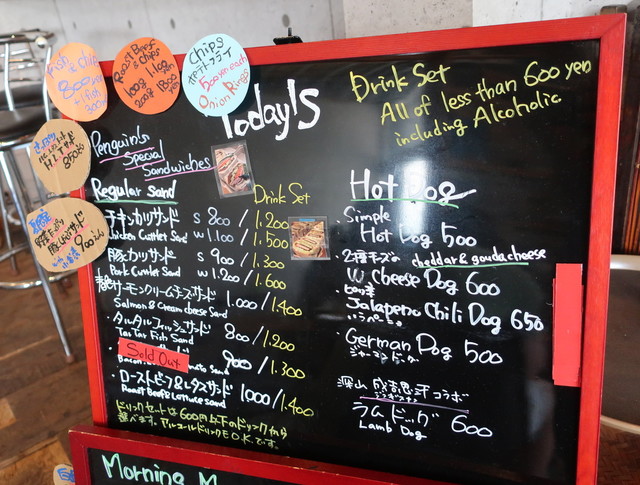 Fish & chips
800
+1fish
300
Roast Beef & chips
100g 1100yen
200g 1800yen
Chips
ポテトフライ
500yen each
Onion Rings
850
900
Today's
Drink Set
All of less than 600 yen
including Alcoholic
Penguin's
Special
Sandwiches
Regular Sand
Drink Set
チキンカツサンド S 800 / 1.200
Chicken Cutlet Sand W 1.100 / 1.500
豚ヒカツサンド S 900 / 1.300
Pork Cutlet Sand W 1.200 / 1.600
サーモンクリームチーズサンド 1.000 / 1.400
Salmon & Cream cheese Sand
・タルタルフィッシュサンド 800 / 1.200
Tar Tar Fish Sand
Sold Out 900 / 1.300
Bacon mato Sand
・ローストビーフ&レタスサンド 1000 / 1.400
Roast Beef & Lettuce sand
ドリンクセットは600円以下のドリンクから
選べます。アルコールドリンクもO.K.です。
Hot Dog
・Simple
Hot Dog 500
・2種チーズの cheddar & gouda cheese
W Cheese Dog 600
Jalapeno Chili Dog 650
ハラペーニョ
・German Dog 500
ジャーマンドッグ
深山 成吉思汗コラボ
ジンギスカン
ラムドッグ 600
Lamb Dog
Morning M